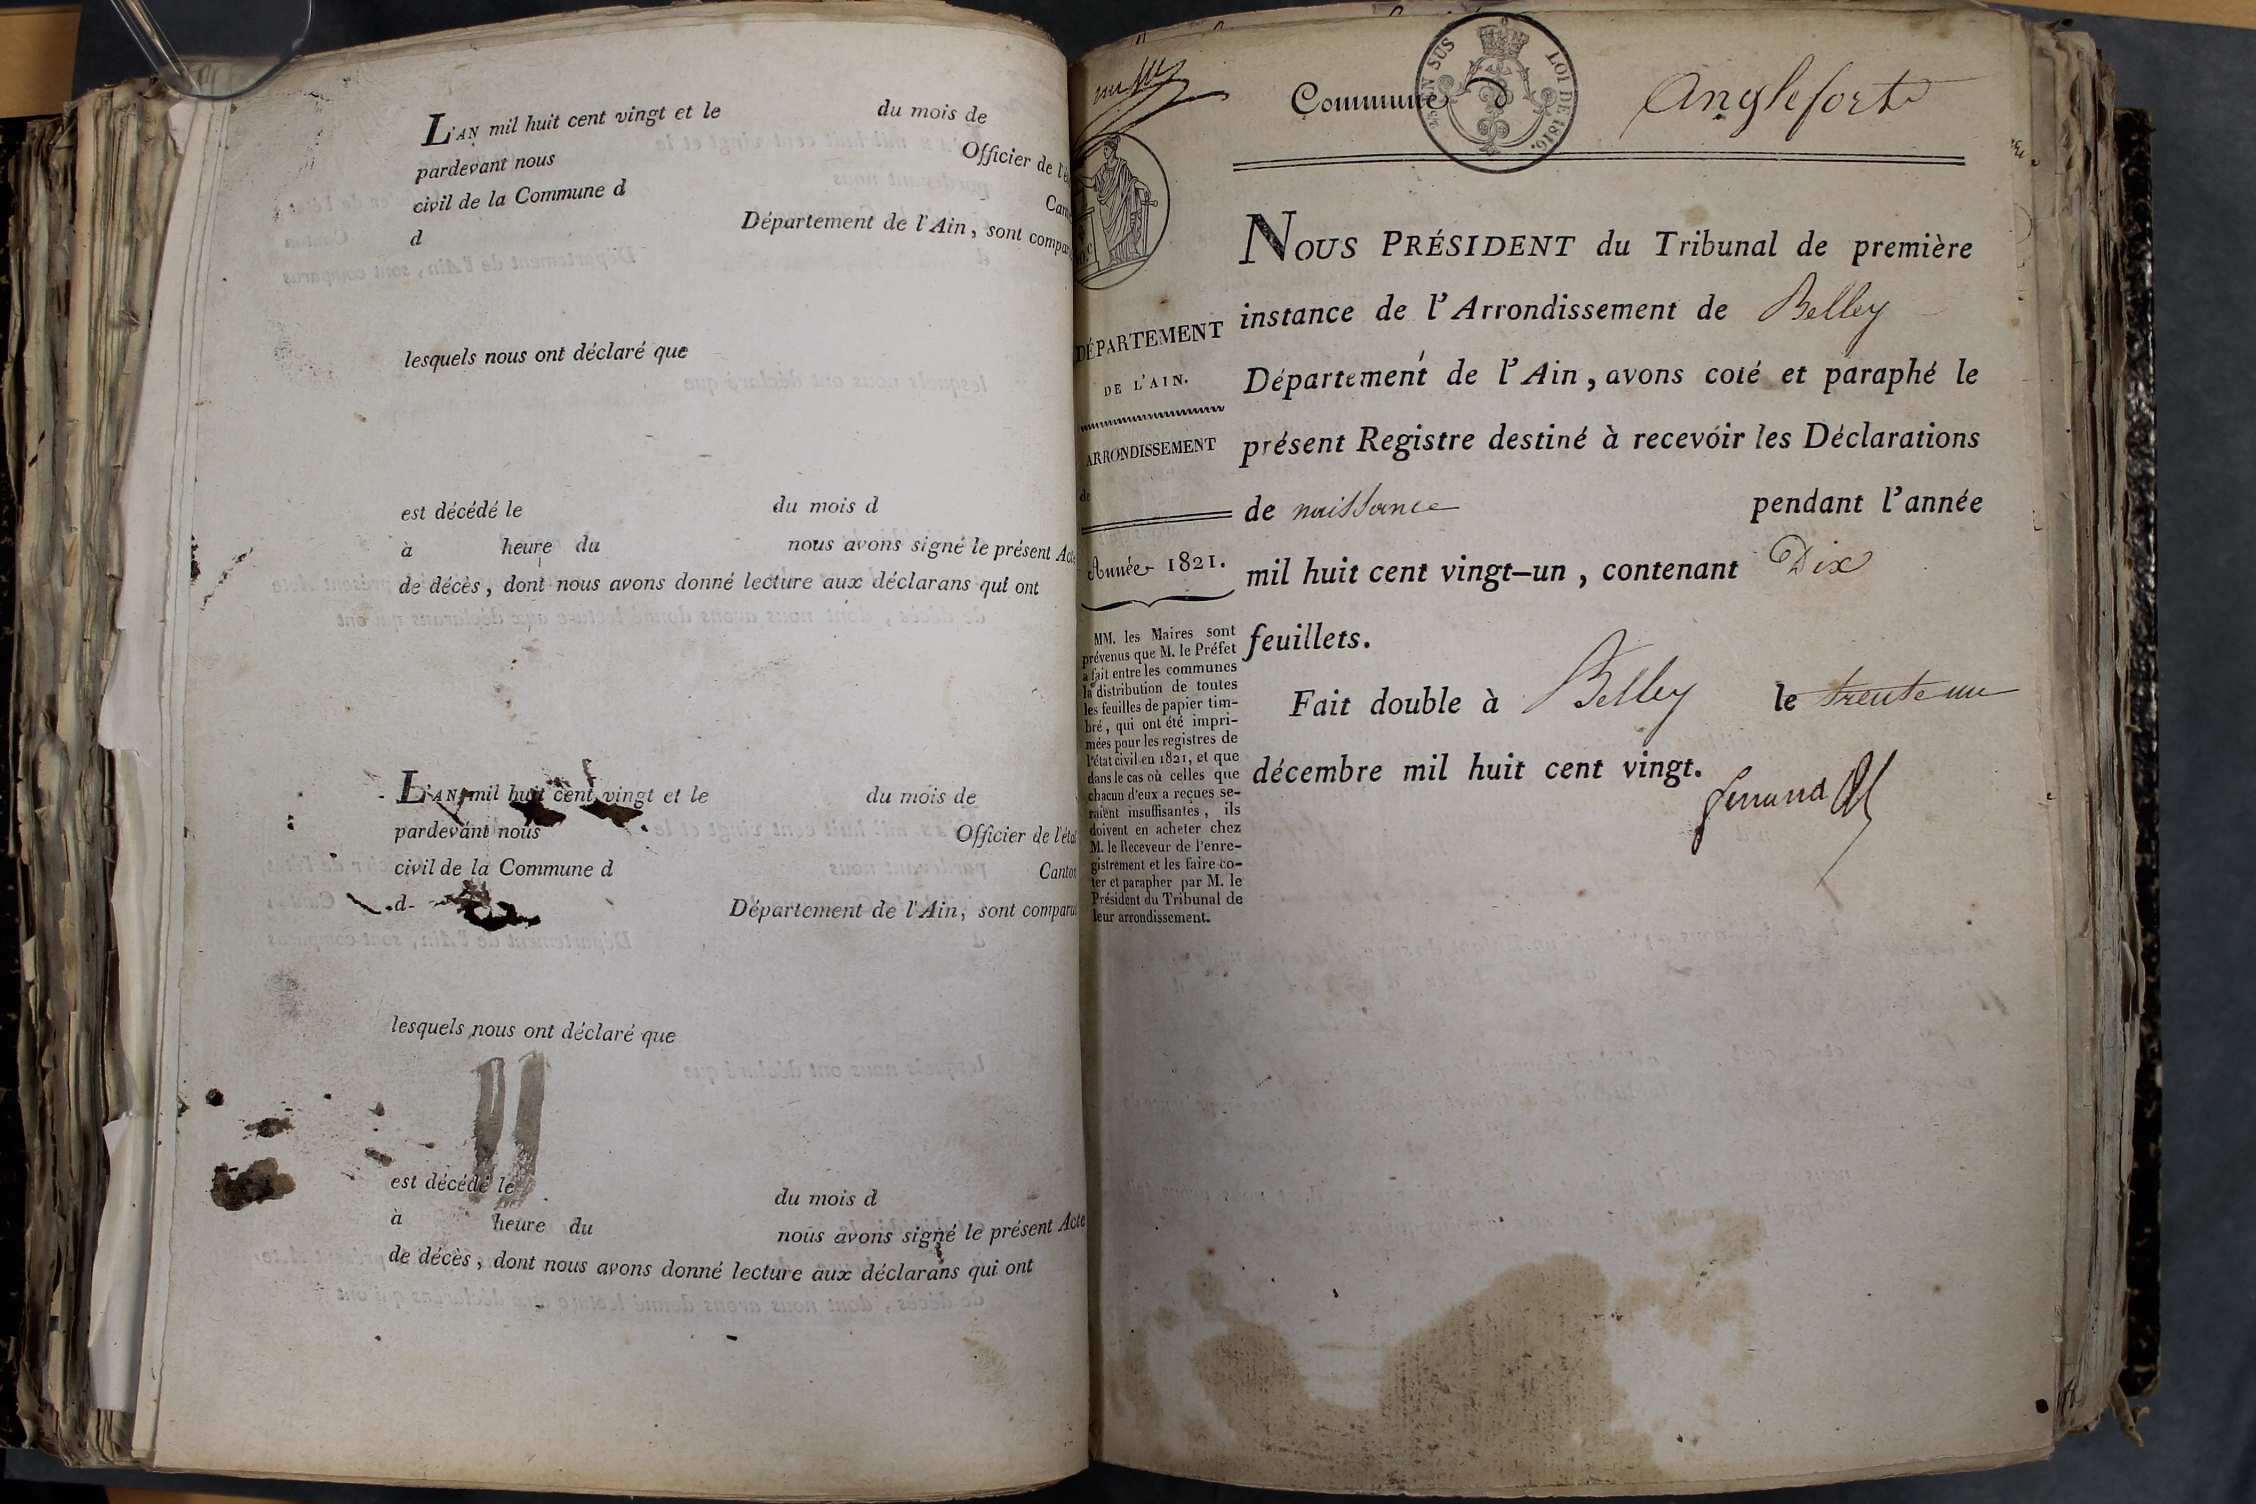 L'AN mil huit cent vingt et le du mois de
pardevant nous Officier de l'é
civil de la Commune d Can
d Département de l'Ain, sont compar
lesquels nous ont déclaré que
est décédé le du mois d
à heure du nous avons signé le présent Acte
de décès, dont nous avons donné lecture aux déclarans qui ont
L'AN mil huit cent vingt et le du mois de
pardevant nous Officier de l'éta
civil de la Commune d Canton
d Département de l'Ain, sont comparu
lesquels nous ont déclaré que
est décédé le du mois d
à heure du nous avons signé le présent Acte
de décès, dont nous avons donné lecture aux déclarans qui ont
EN SUS LOI DE 1816.
Commune d Anglefort
DÉPARTEMENT
DE L'AIN.
ARRONDISSEMENT
de
Année 1821.
MM. les Maires sont
prévenus que M. le Préfet
a fait entre les communes
la distribution de toutes
les feuilles de papier tim-
bré, qui ont été impri-
mées pour les registres de
l'état civil en 1821, et que
dans le cas où celles que
chacun d'eux a reçues se-
raient insuffisantes, ils
doivent en acheter chez
M. le Receveur de l'enre-
gistrement et les faire co-
ter et parapher par M. le
Président du Tribunal de
leur arrondissement.
NOUS PRÉSIDENT du Tribunal de première
instance de l'Arrondissement de Belley
Département de l'Ain, avons coté et paraphé le
présent Registre destiné à recevoir les Déclarations
de naissance pendant l'année
mil huit cent vingt-un, contenant Dix
feuillets.
Fait double à Belley le trente un
décembre mil huit cent vingt.